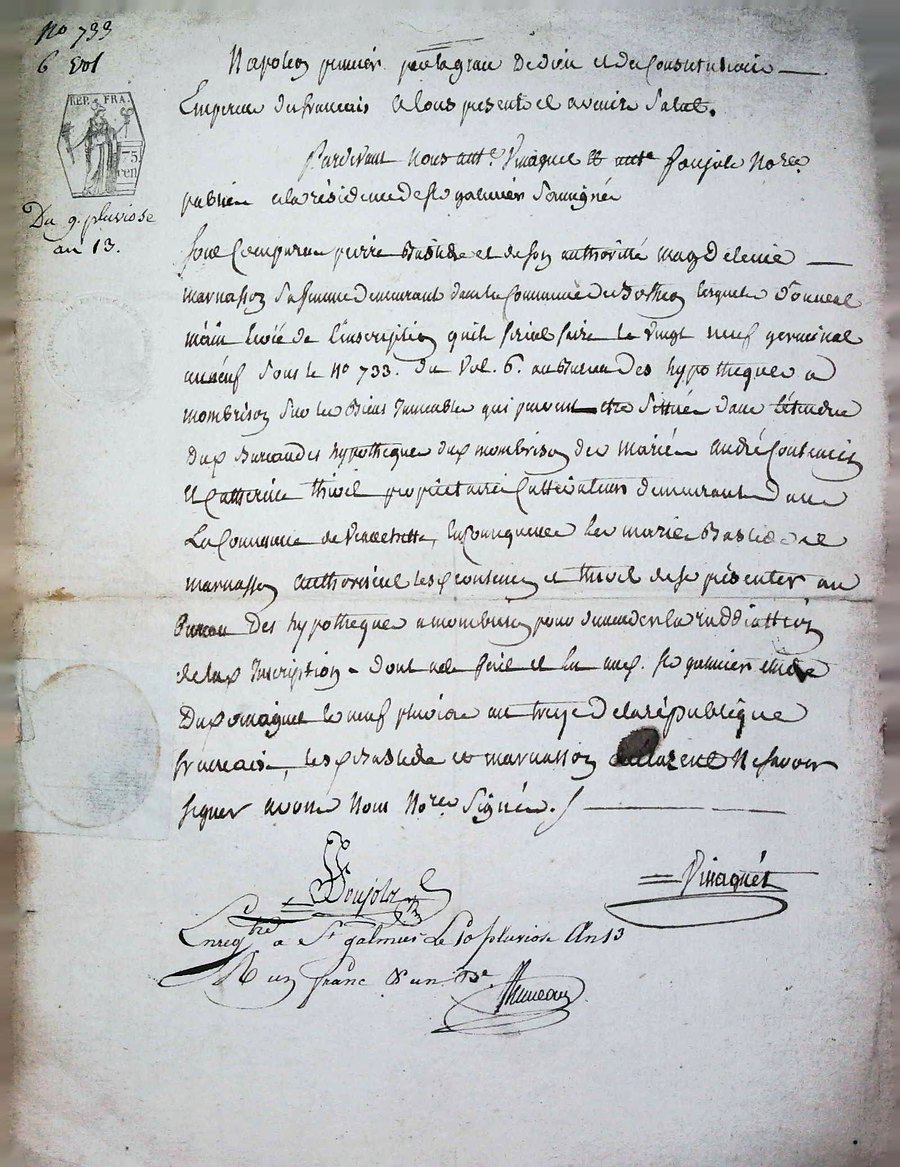 No 733
6 Vol
REP. FRA.
75
cen
Du 9. pluviose
an 13.
Napoleon premier par la grace de dieu et des Constitutions
Empereur des francais a tous present et avenir Salut.
Pardevant Nous ant.e Vinagnet & ant.e Ponjols No.res
publics a la résidence de St galmier Soussignés
pierre Bastide et de son authorité magdeleine
marnasson sa femme demeurant dans la Commune de lesquels donnent
main levée de l'inscription qu'ils firent faire le vingt neuf germinal
an neuf Sous le No 733. du Vol. 6. au Bureau des hypotheques a
mombrison Sur les Biens immeubles qui peuvent etre Situés dans l'étendue
dud Bureau des hypotheques dud mombrison des mariés andré Contencin
et Catherine thivel propriétaires Cultivateurs demeurant dans
La Commune de En Conséquence les mariés Bastide et
marnasson authorisent lesd Contencin et thivel de se présenter au
Bureau Des hypotheques a mombrison pour demander la raddiattion
de lad Inscription - dont acte fait et lu aud. St galmier etude
Dud Vinagnet le neuf pluviose an treize De la république
francaise, lesd Bastide et marnasson déclarent Ne savoir
signer avons Nous No.res Signés.
Ponjols
Vinagnet
Enreg.tré a St galmier Le 10 pluviose An 13
R un franc & un D.e